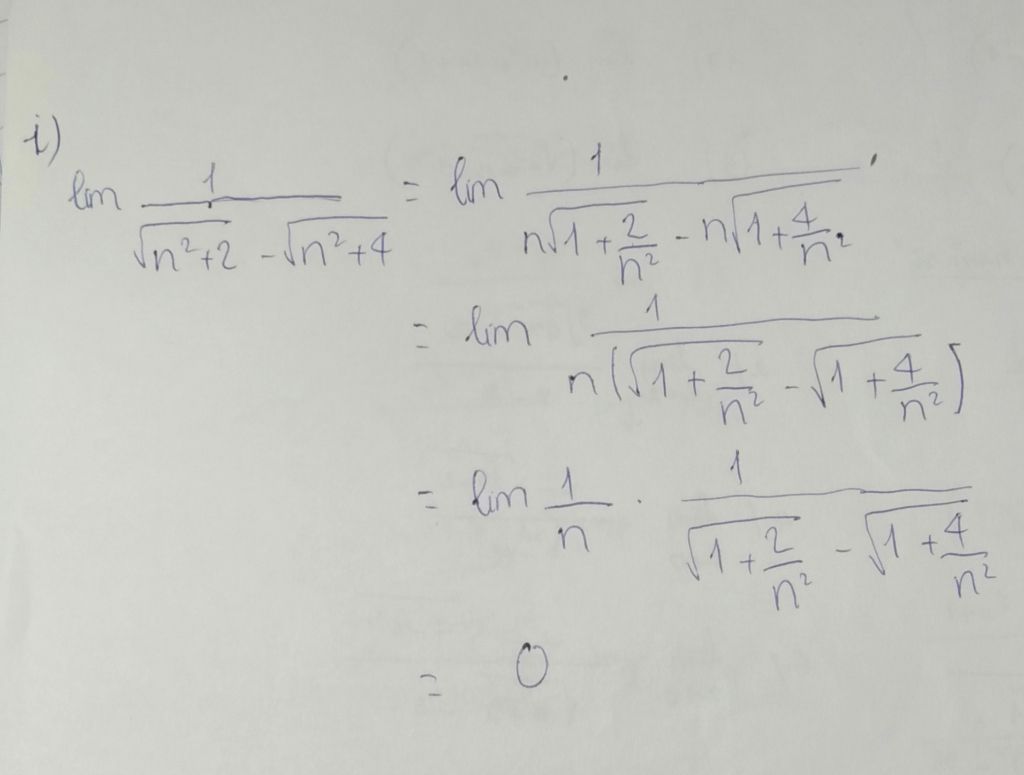 i)
lim 1/(√(n²+2) - √(n²+4)) = lim 1/(n√(1+2/n²) - n√(1+4/n²))
= lim 1/(n(√(1+2/n²) - √(1+4/n²)))
= lim 1/n · 1/(√(1+2/n²) - √(1+4/n²))
= 0